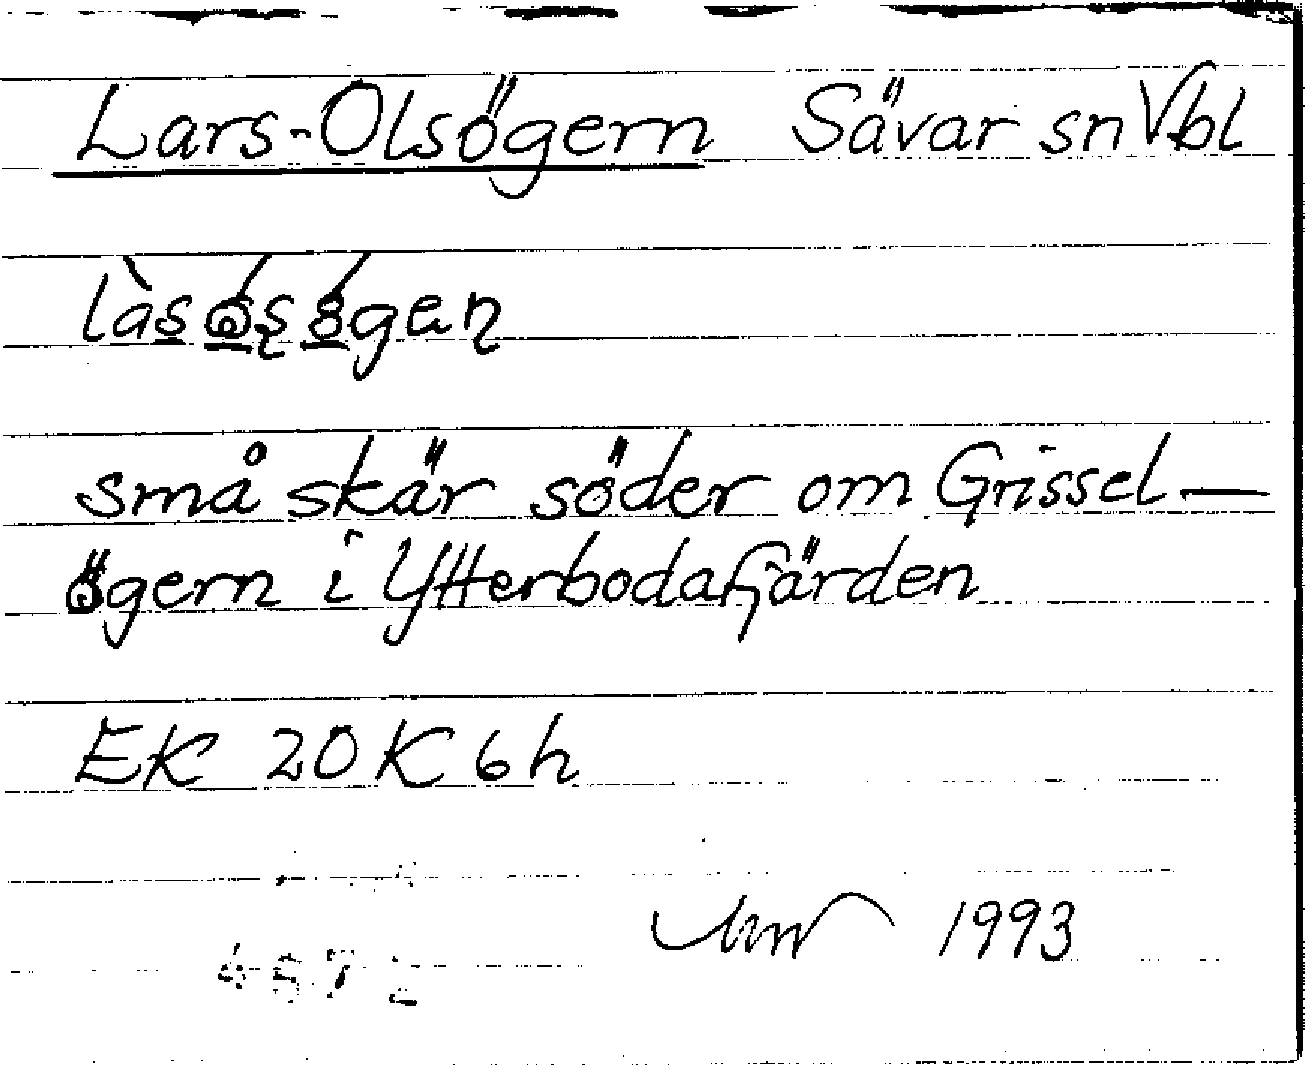 Lars-Olsögern Sävar sn Vbl
små skär söder om Grissel-
ögern i Ytterbodafjärden
EK 20 K 6 h
1993